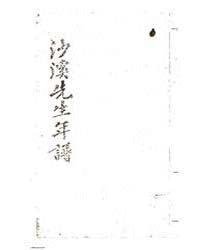 沙溪先生年譜